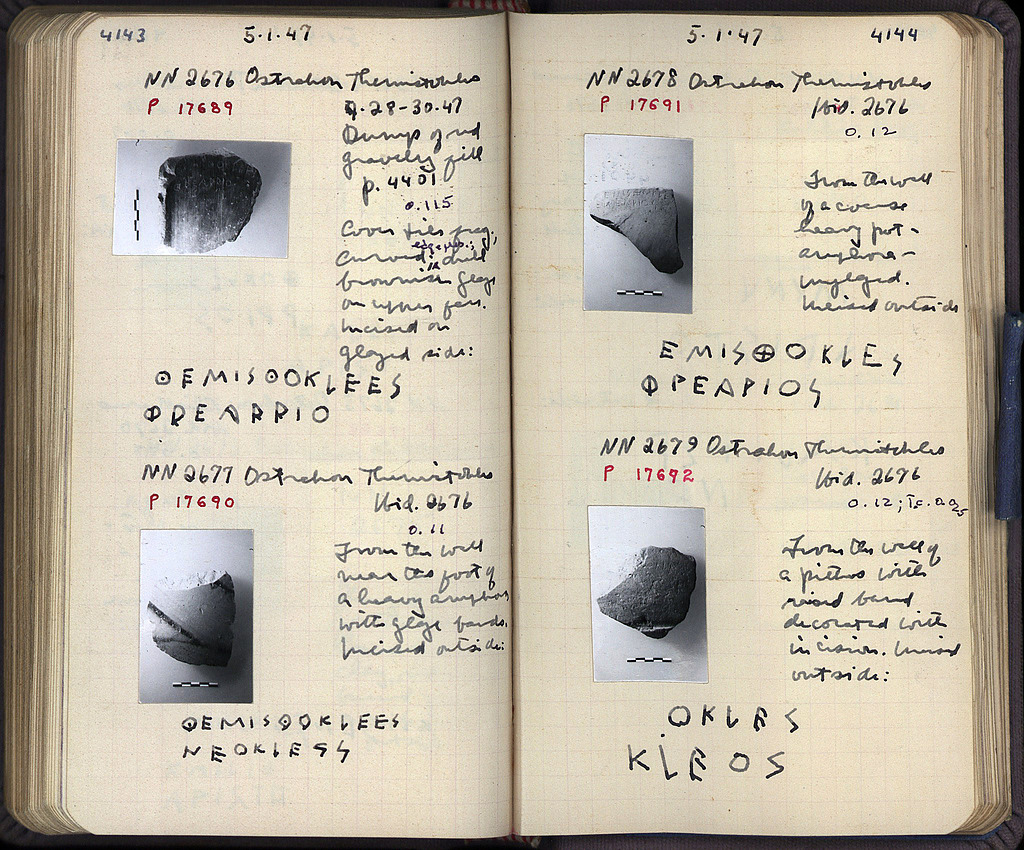 4143 5·1·47
NN 2676 Ostrakon Themistokles
P 17689
9·28-30·47
Dump of red
gravelly fill
p. 4401
0.115
Cover tile frag;
edge pres.;
curved; dull
brownish glaze
on upper face.
Incised on
glazed side:
ΘEMISΘOKLEES
ΦREARRIO
NN 2677 Ostrakon Themistokles
P 17690
Ibid. 2676
0.11
From the wall
near the foot of
a heavy amphora
with glaze bands.
Incised outside:
ΘEMISΘOKLEES
NEOKLESS
5·1·47 4144
NN 2678 Ostrakon Themistokles
P 17691
Ibid. 2676
0.12
From the wall
of a coarse
heavy pot-
amphora-
unglazed.
Incised outside
EMISΘOKLES
ΦPEAPIOS
NN 2679 Ostrakon Themistokles
P 17692
Ibid. 2676
0.12; Th. 0.025
From the wall of
a pithos with
raised band
decorated with
incision. Incised
outside:
OKLES
KLEOS